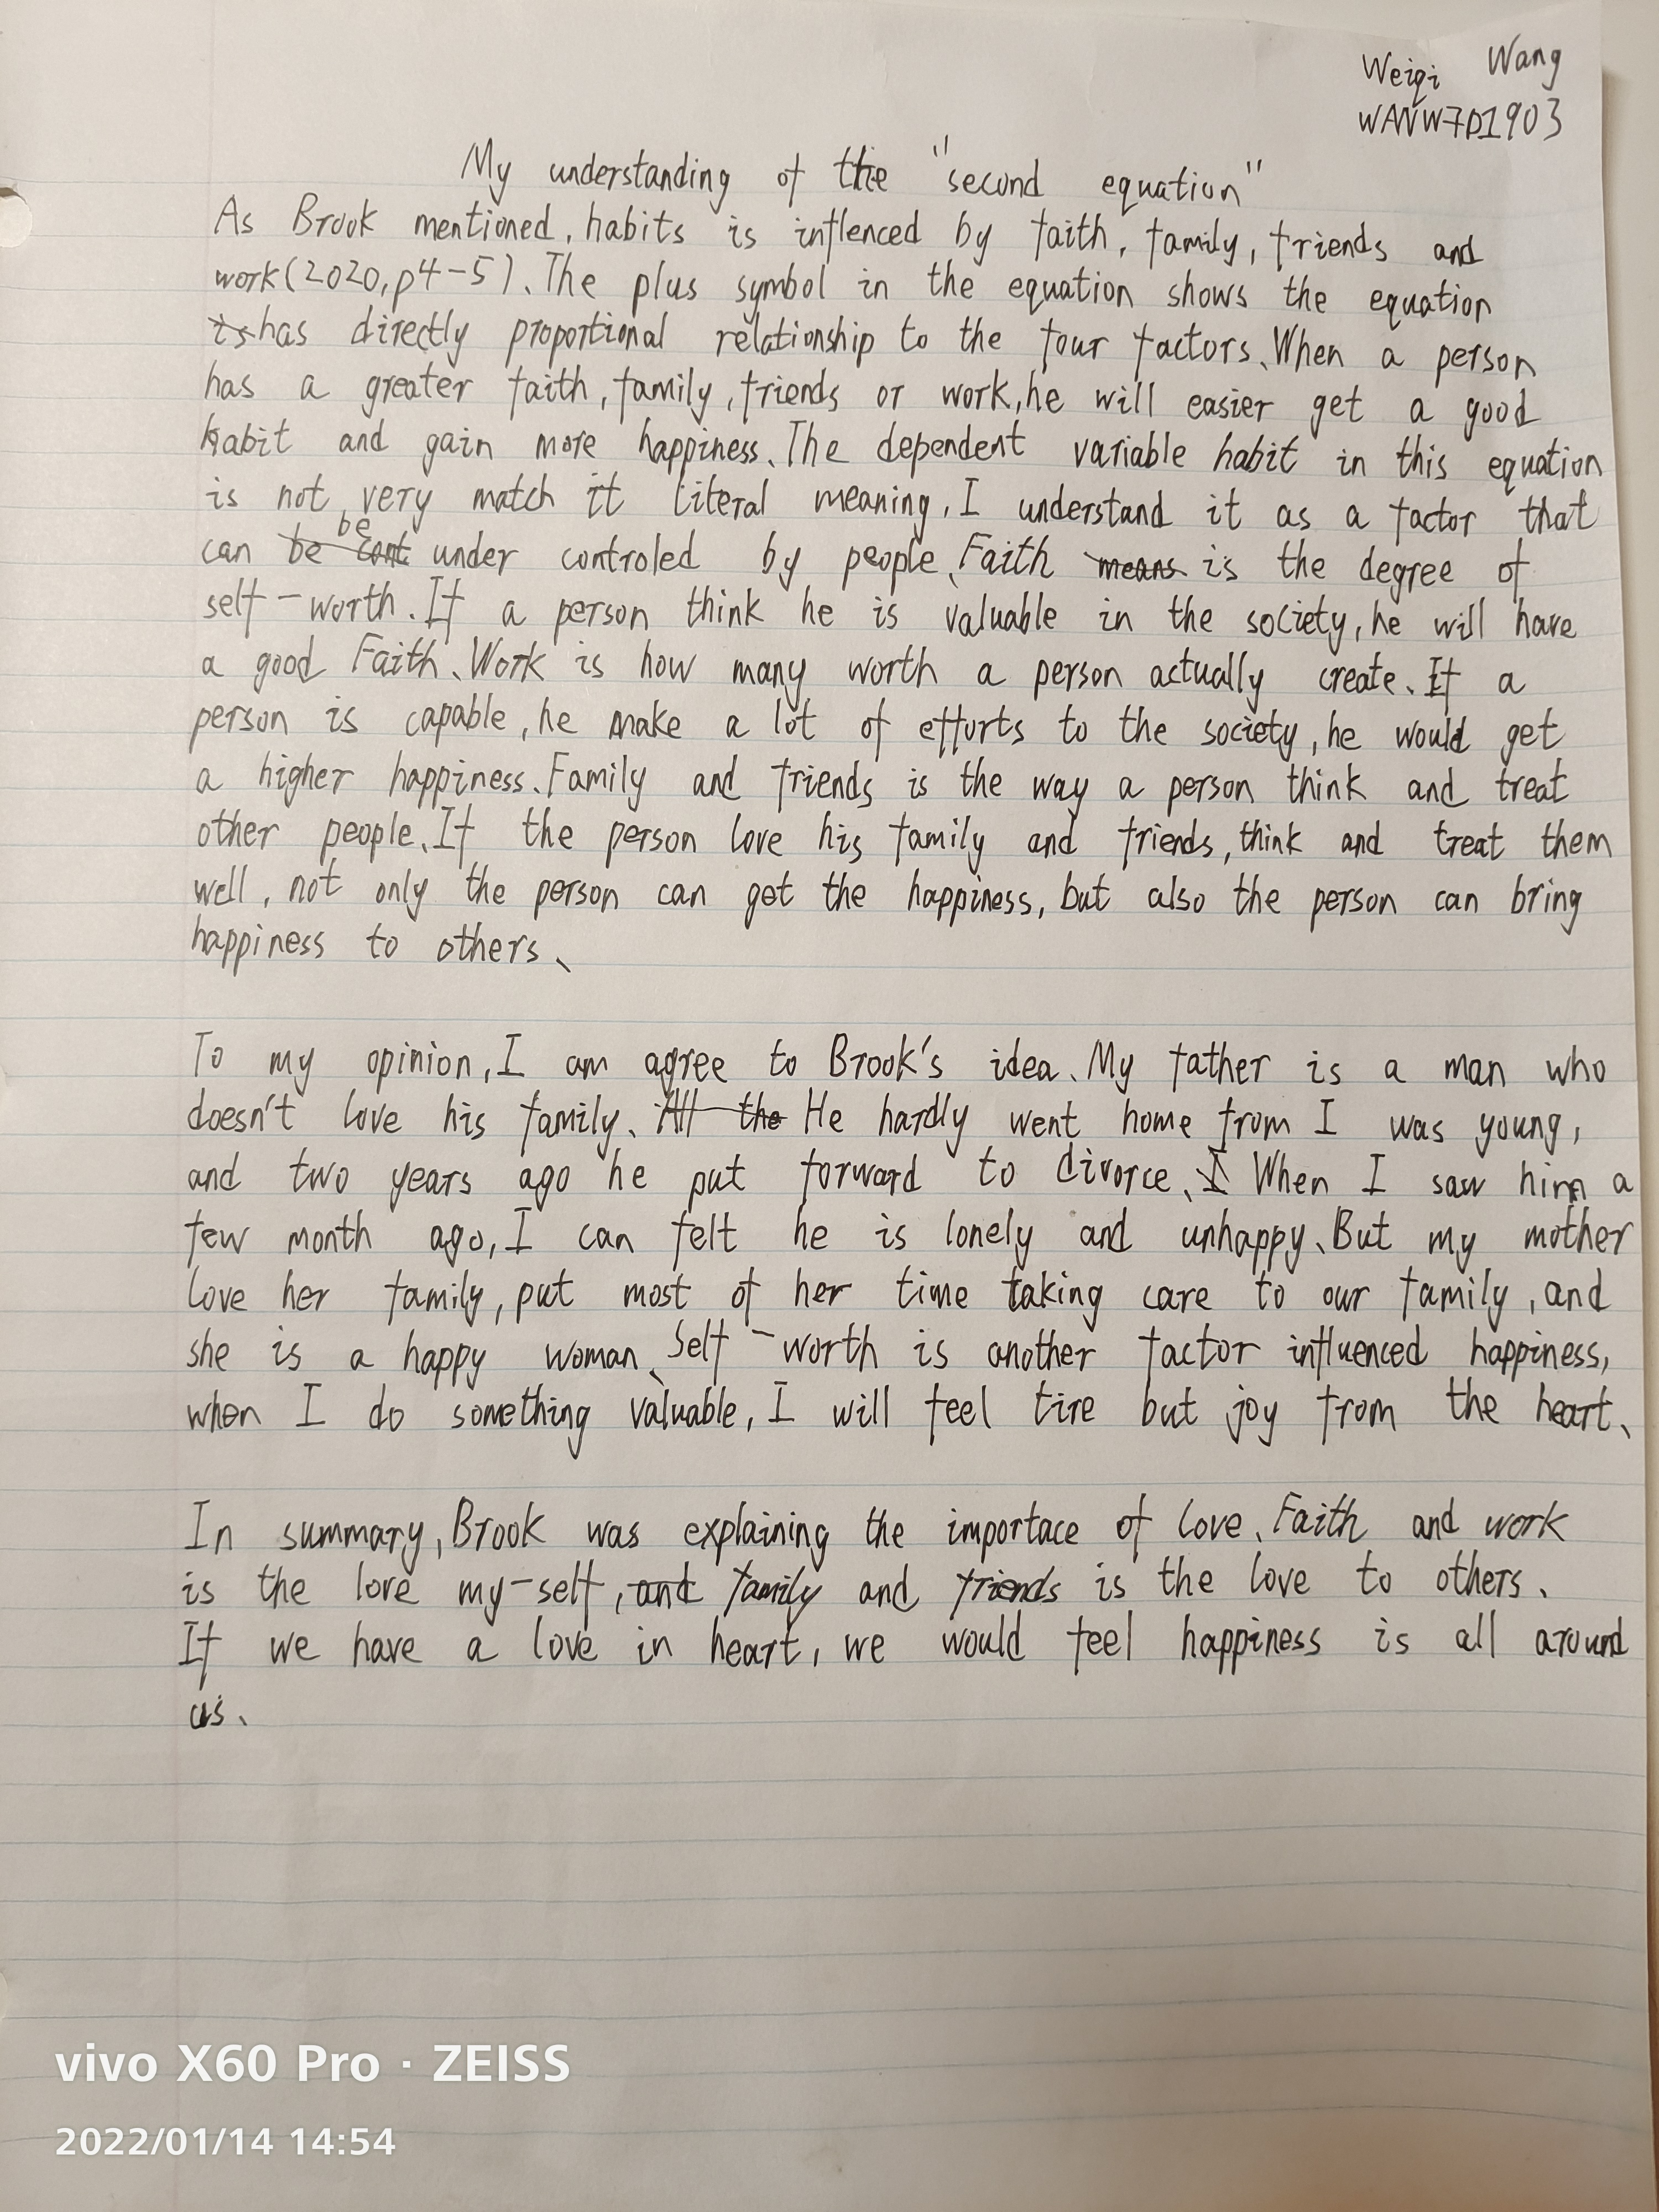 Weiqi Wang
WANW7D1903
My understanding of the "second equation"
As Brook mentioned, habits is inflenced by faith, family, friends and
work(2020,p4-5). The plus symbol in the equation shows the equation
is has directly proportional relationship to the four factors. When a person
has a greater faith, family, friends or work, he will easier get a good
habit and gain more happiness. The dependent variable habit in this equation
is not very match it literal meaning, I understand it as a factor that
be
can be cont under controled by people. Faith means is the degree of
self-worth. If a person think he is valuable in the society, he will have
a good Faith. Work is how many worth a person actually create. If a
person is capable, he make a lot of efforts to the society, he would get
a higher happiness. Family and friends is the way a person think and treat
other people. If the person love his family and friends, think and treat them
well, not only the person can get the happiness, but also the person can bring
happiness to others.
To my opinion, I am agree to Brook's idea. My father is a man who
doesn't love his family. All the He hardly went home from I was young,
and two years ago he put forward to divorce. I When I saw him a
few month ago, I can felt he is lonely and unhappy. But my mother
love her family, put most of her time taking care to our family, and
she is a happy woman. Self-worth is another factor influenced happiness,
when I do something valuable, I will feel tire but joy from the heart.
In summary, Brook was explaining the importace of love. Faith and work
is the love my-self, and family and friends is the love to others.
If we have a love in heart, we would feel happiness is all around
us.
vivo X60 Pro · ZEISS
2022/01/14 14:54